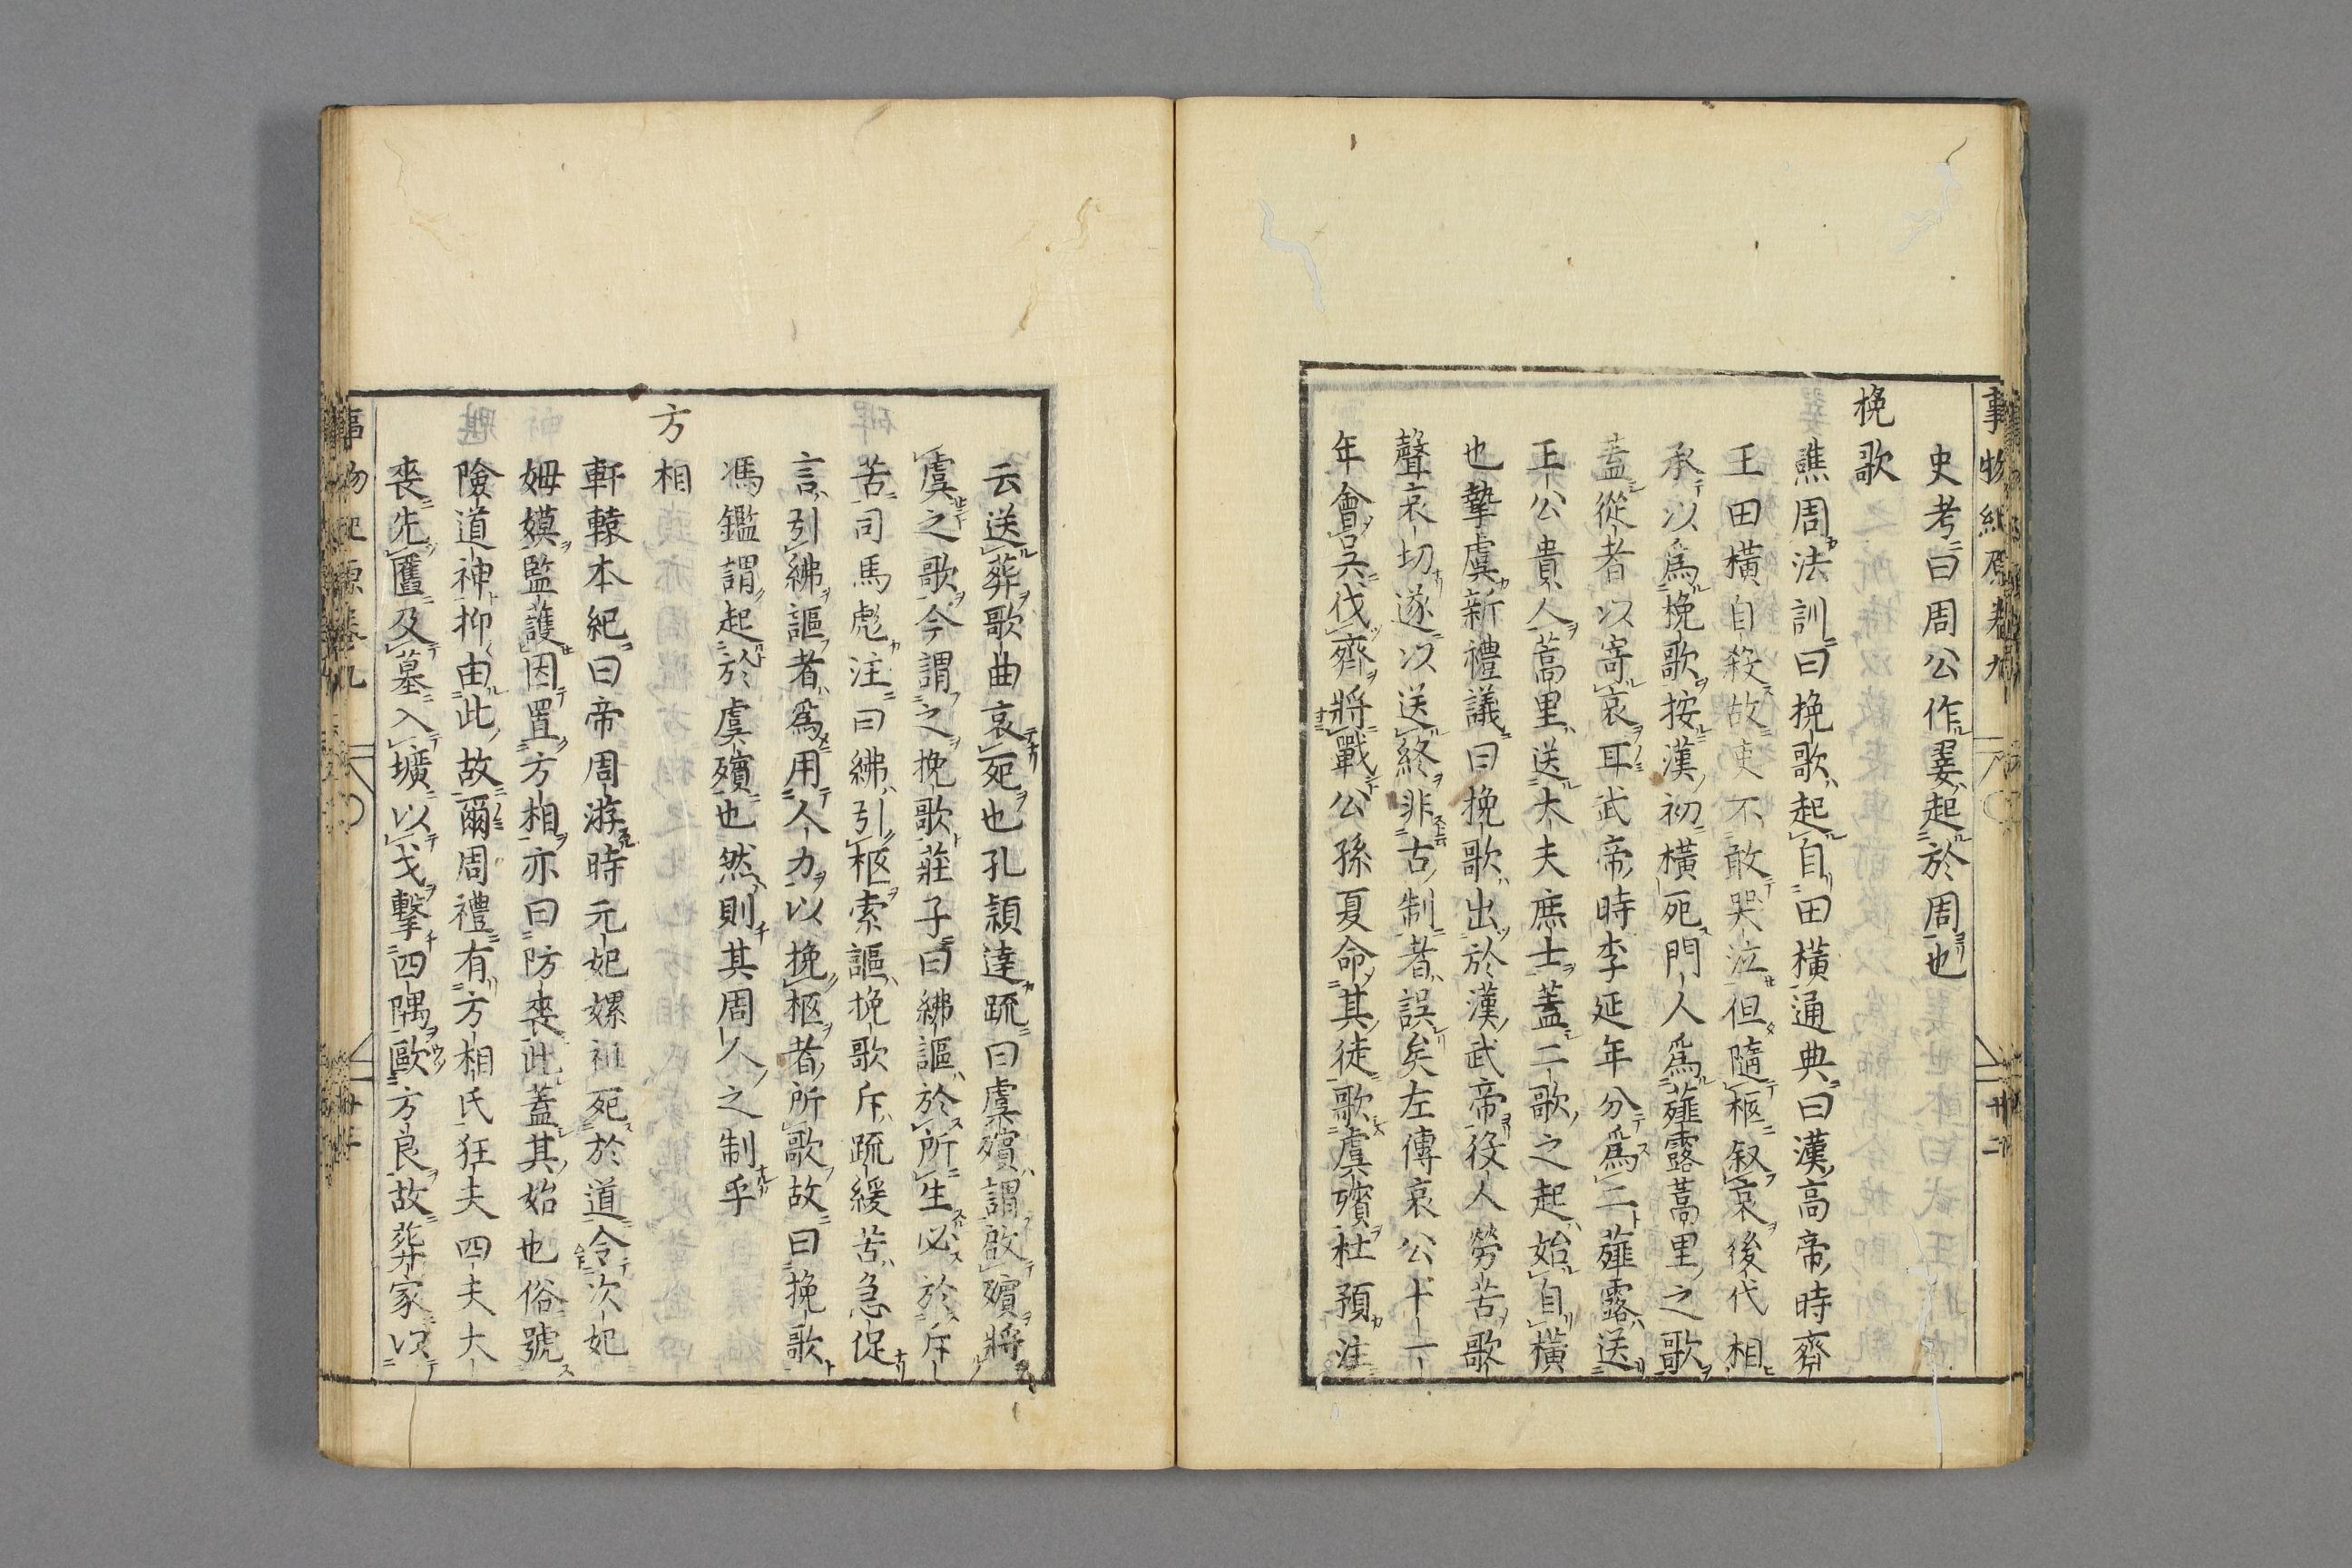 事物紀原卷九 廿二
史考曰周公作翣起於周也
挽歌
譙周法訓曰挽歌起自田橫通典曰漢高帝時齊
王田橫自殺故吏不敢哭泣但隨柩叙哀後代相
承以為挽歌按漢初橫死門人為薤露蒿里之歌
蓋從者以寄哀耳武帝時李延年分為二薤露送
王公貴人蒿里送大夫庶士蓋二歌之起始自橫
也摯虞新禮議曰挽歌出於漢武帝役人勞苦歌
聲哀切遂以送終非古制者誤矣左傳哀公十一
年會吳伐齊將戰公孫夏命其徒歌虞殯杜預注
云送葬歌曲哀死也孔穎達疏曰虞殯謂啟殯將
虞之歌今謂之挽歌莊子曰紼謳於所生必於斥
苦司馬彪注曰紼引柩索謳挽歌斥疏緩苦急促
言引紼謳者為用人力以挽柩者所歌故曰挽歌
馮鑑謂起於虞殯也然則其周人之制乎
方相
軒轅本紀曰帝周游時元妃嫘祖死於道令次妃
姆嫫監護因置方相亦曰防喪此蓋其始也俗號
險道神抑由此故爾周禮有方相氏狂夫四夫大
喪先匶及墓入壙以戈擊四隅歐方良故葬家以
事物紀原卷九